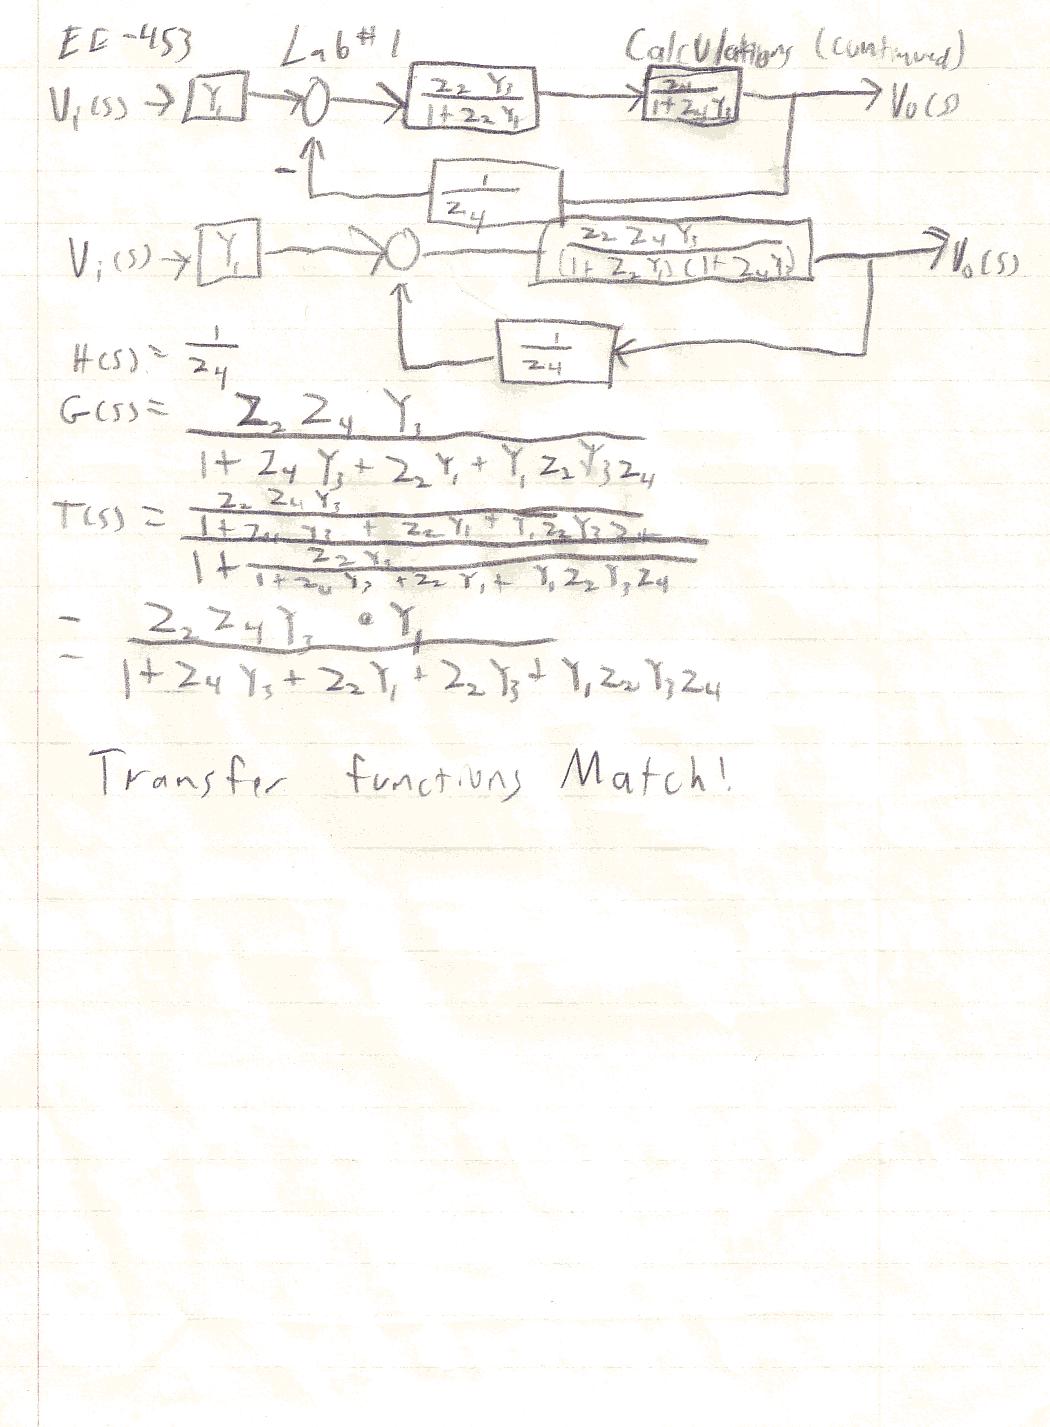 EE-453 Lab #1 Calculations (continued)
Vi(s) → Y1 → Z2 Y3 / 1+Z2 Y1 → Z4 / 1+Z4 Y3 → Vo(s)
-
1/Z4
Vi(s) → Y1 → Z2 Z4 Y3 / (1+Z2 Y1)(1+Z4 Y3) → Vo(s)
1/Z4
H(s) = 1/Z4
G(s) = Z2 Z4 Y3
1+ Z4 Y3 + Z2 Y1 + Y1 Z2 Y3 Z4
T(s) = Z2 Z4 Y3
1+Z4 Y3 + Z2 Y1 + Y1 Z2 Y3 Z4
1+ Z2 Y3
1+Z4 Y3 +Z2 Y1 + Y1 Z2 Y3 Z4
= Z2 Z4 Y3 • Y1
1+Z4 Y3 + Z2 Y1 + Z2 Y3 + Y1 Z2 Y3 Z4
Transfer functions Match!